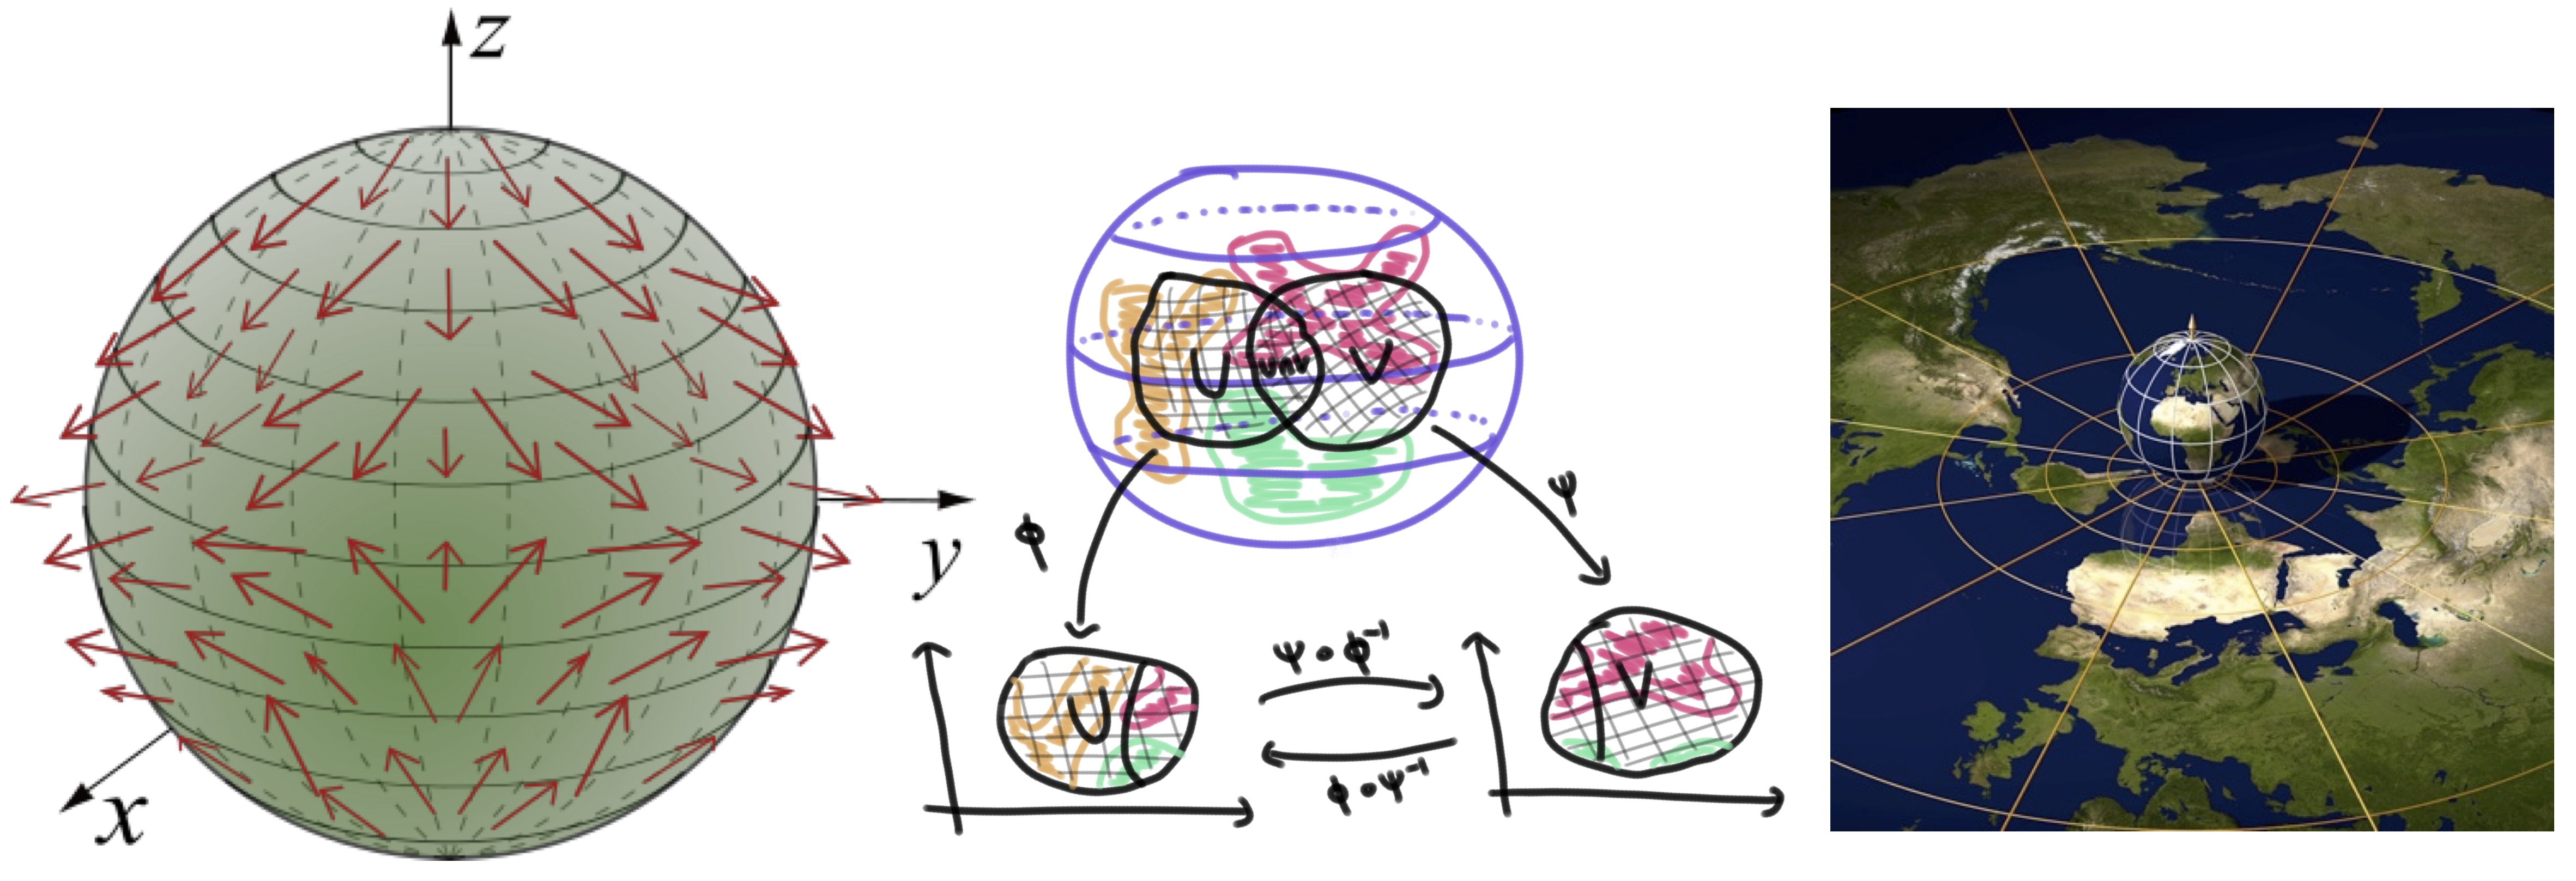 z
y
x
U
U∩V
V
ϕ
ψ
U
ψ∘ϕ⁻¹
ϕ∘ψ⁻¹
V